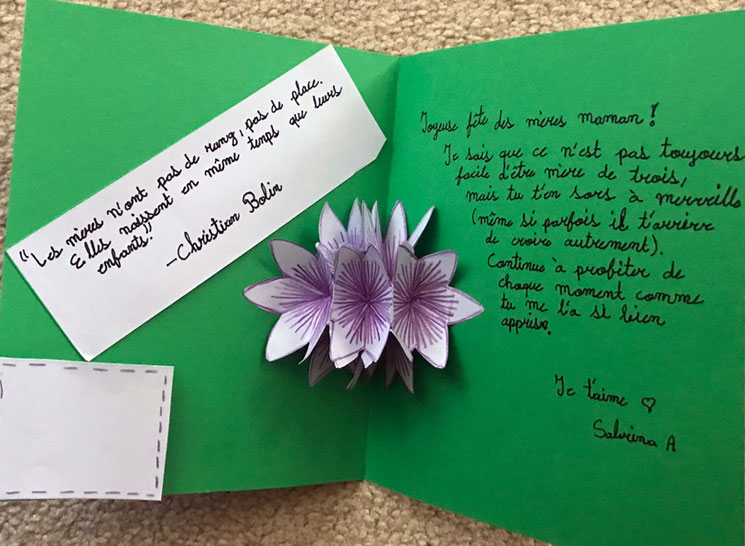 "Les mères n'ont pas de rang, pas de place.
Elles naissent en même temps que leurs
enfants."
-Christian Bolin
Joyeuse fête des mères maman!
Je sais que ce n'est pas toujours
facile d'être mère de trois,
mais tu t'en sors à merveille
(même si parfois il t'arrive
de croire autrement).
Continue à profiter de
chaque moment comme
tu me l'a si bien
apprise.
Je t'aime ♡
Sabrina A